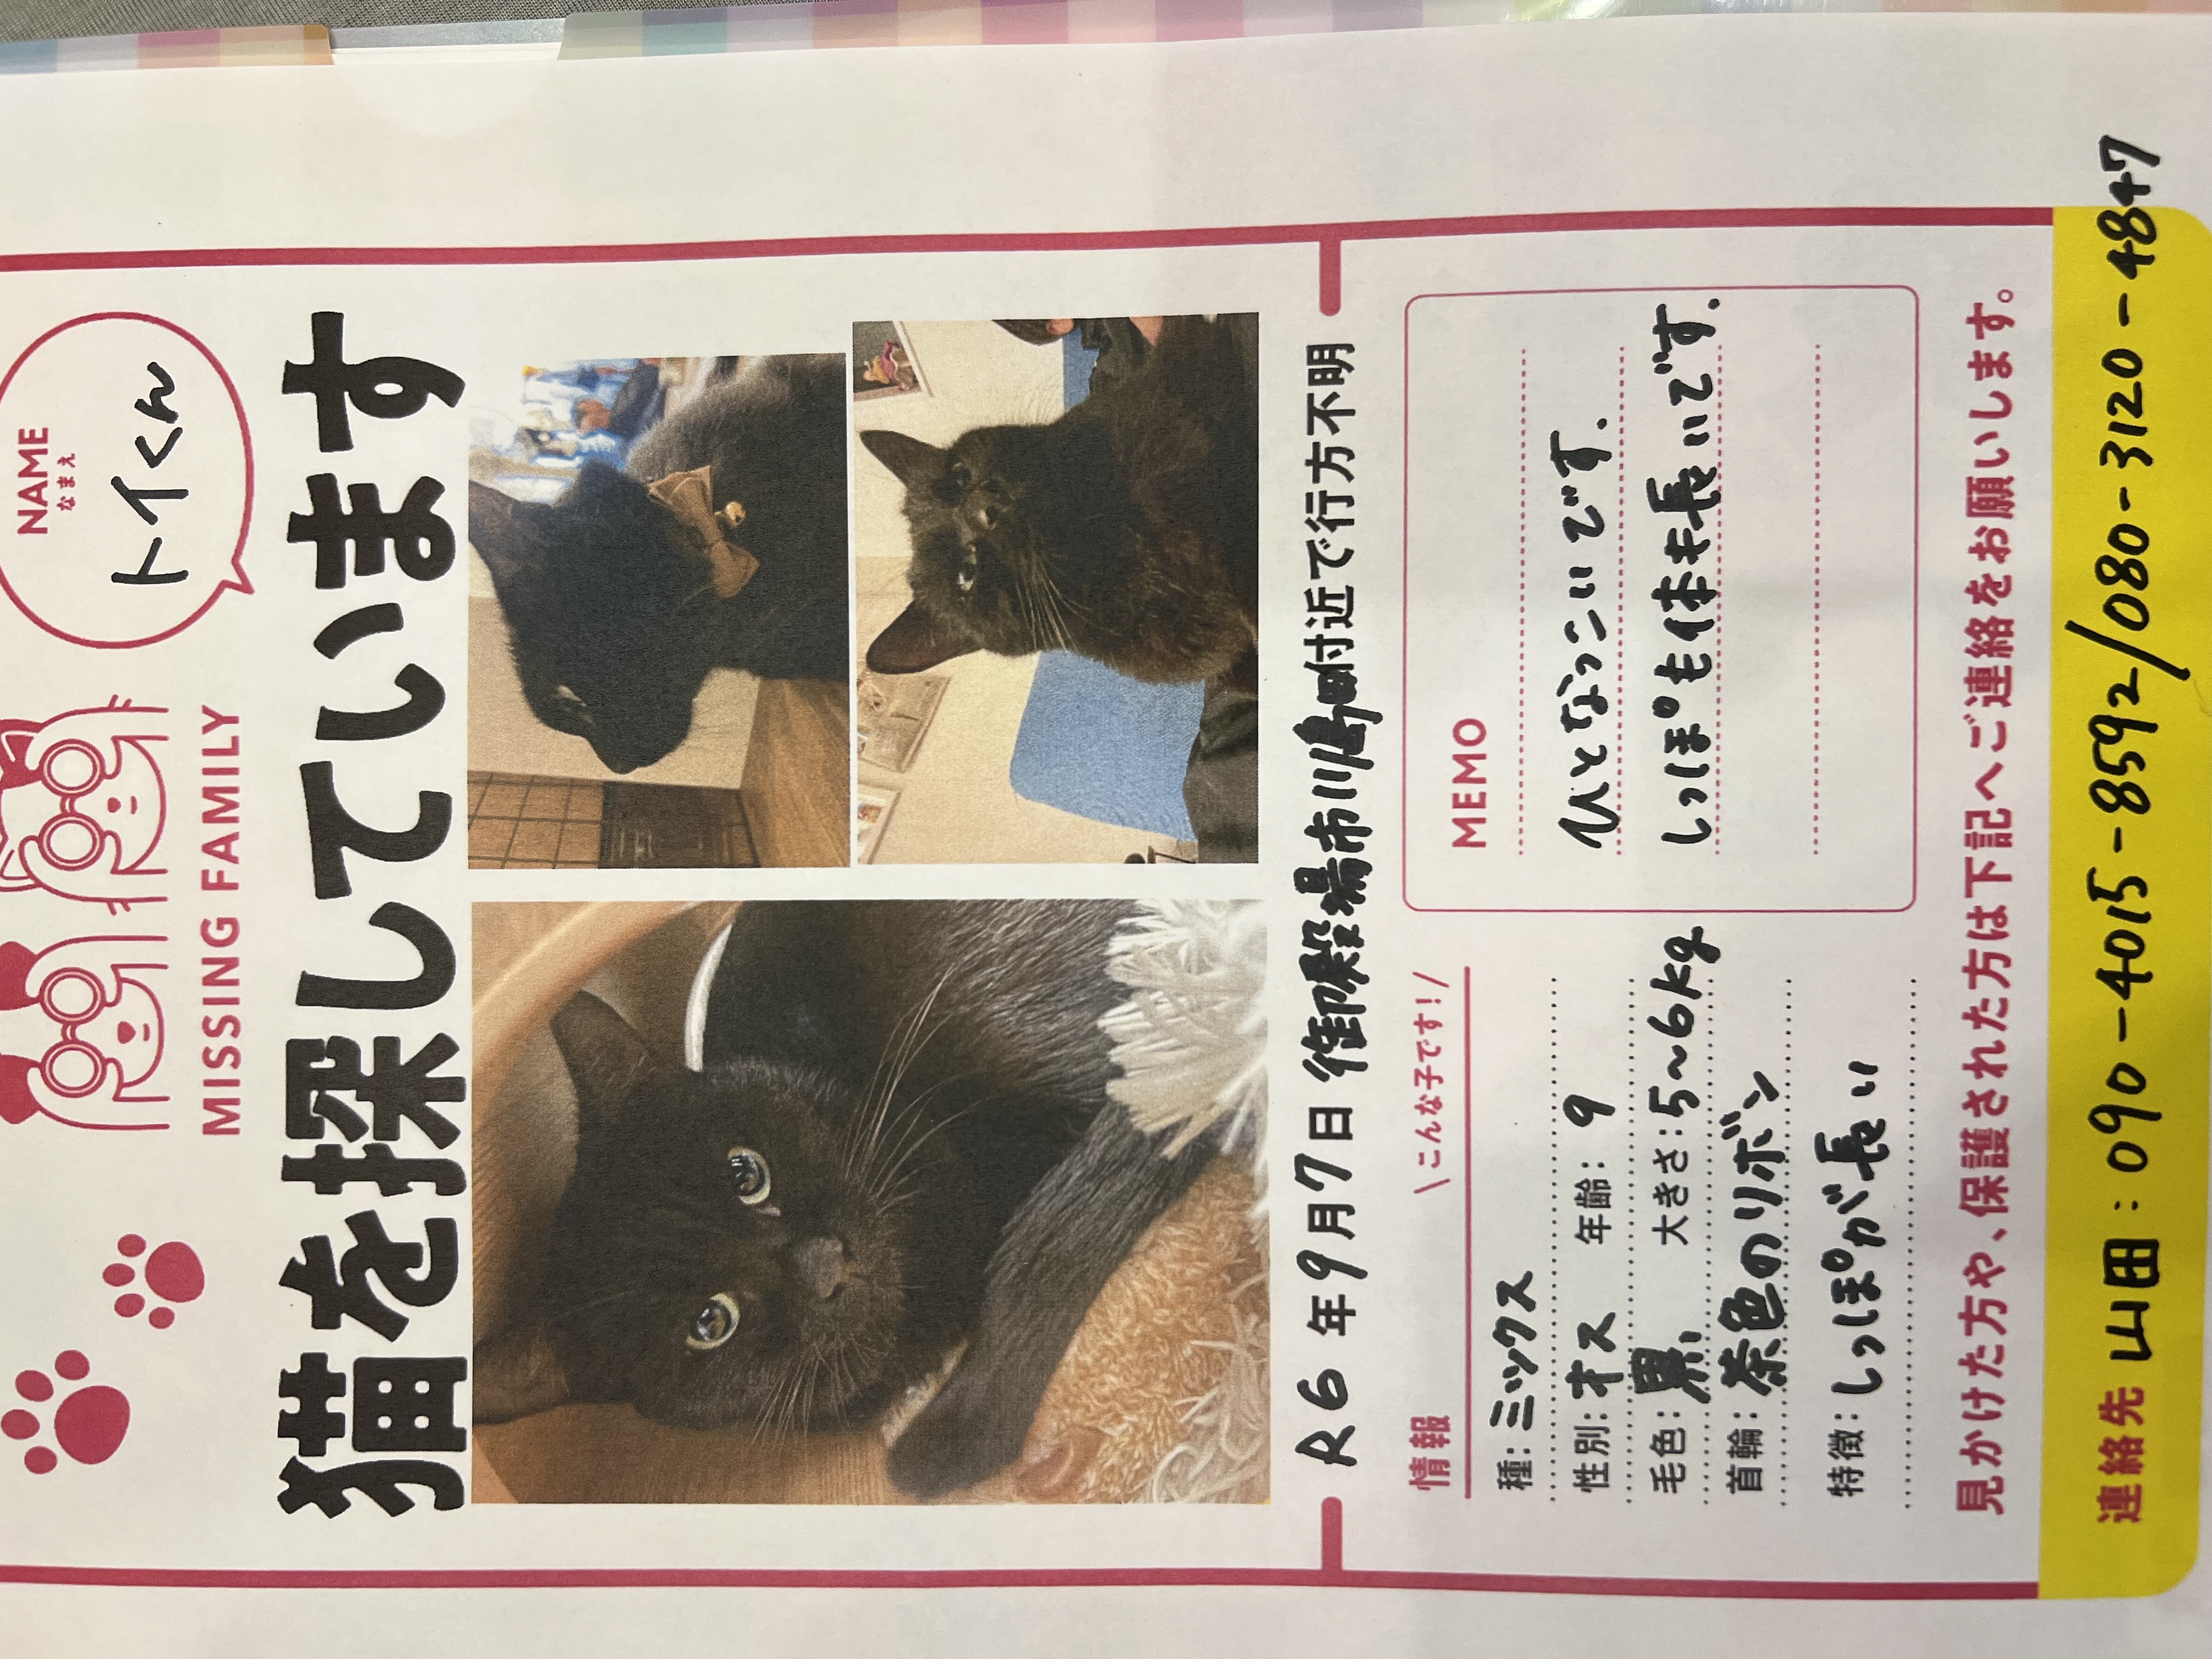 NAME
なまえ
トイくん
MISSING FAMILY
猫を探しています
R6年9月7日 御殿場市川島田付近で行方不明
情報
\ こんな子です! /
種: ミックス
性別: オス 年齢: 9
毛色: 黒 大きさ: 5〜6kg
首輪: 茶色のリボン
特徴: しっぽが長い
MEMO
ひとなつっこいです.
しっぽも体も長いです.
見かけた方や、保護された方は下記へご連絡をお願いします。
連絡先 山田: 090-4015-8592/080-3120-4847